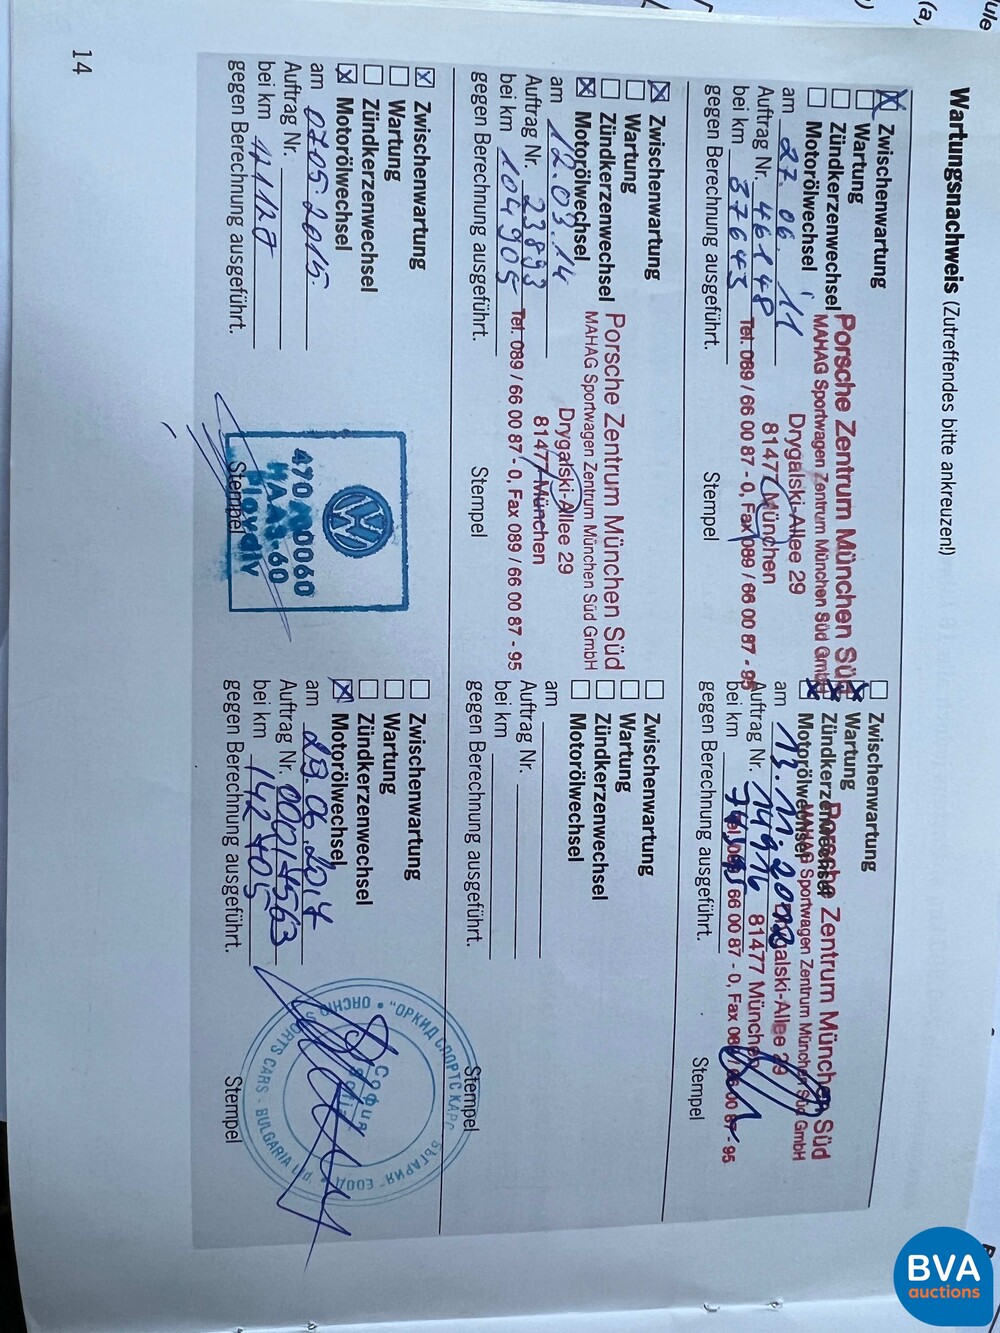 Wartungsnachweis (Zutreffendes bitte ankreuzen!)
Zwischenwartung
Wartung
Zündkerzenwechsel
Motorölwechsel
am 27. 06. 11
Auftrag Nr. 46148
bei km 87643
gegen Berechnung ausgeführt.
Porsche Zentrum München Süd
MAHAG Sportwagen Zentrum München Süd GmbH
Drygalski-Allee 29
81477 München
Tel. 089 / 66 00 87 - 0, Fax 089 / 66 00 87 - 95
Stempel
Zwischenwartung
Wartung
Zündkerzenwechsel
Motorölwechsel
am 13. 11.
Auftrag Nr.
bei km
gegen Berechnung ausgeführt.
Porsche Zentrum München Süd
MAHAG Sportwagen Zentrum München Süd GmbH
Drygalski-Allee 29
81477 München
66 00 87 - 0, Fax
Stempel
Zwischenwartung
Wartung
Zündkerzenwechsel
Motorölwechsel
am 12.03.14
Auftrag Nr. 23893
bei km 104905
gegen Berechnung ausgeführt.
Porsche Zentrum München Süd
MAHAG Sportwagen Zentrum München Süd GmbH
Drygalski-Allee 29
81477 München
Tel. 089 / 66 00 87 - 0, Fax 089 / 66 00 87 - 95
Stempel
Zwischenwartung
Wartung
Zündkerzenwechsel
Motorölwechsel
am
Auftrag Nr.
bei km
gegen Berechnung ausgeführt.
Stempel
Zwischenwartung
Wartung
Zündkerzenwechsel
Motorölwechsel
am 07.05.2015
Auftrag Nr.
bei km
gegen Berechnung ausgeführt.
Plovdiv
Stempel
Zwischenwartung
Wartung
Zündkerzenwechsel
Motorölwechsel
am 29.06.2017
Auftrag Nr. 00014563
bei km 142405
gegen Berechnung ausgeführt.
"ОРКИД СПОРТС КАРС
БЪЛГАРИЯ" ЕООД
ORCHID SPORTS CARS - BULGARIA Ltd.
София
Sofia
Stempel
14
BVA
auctions